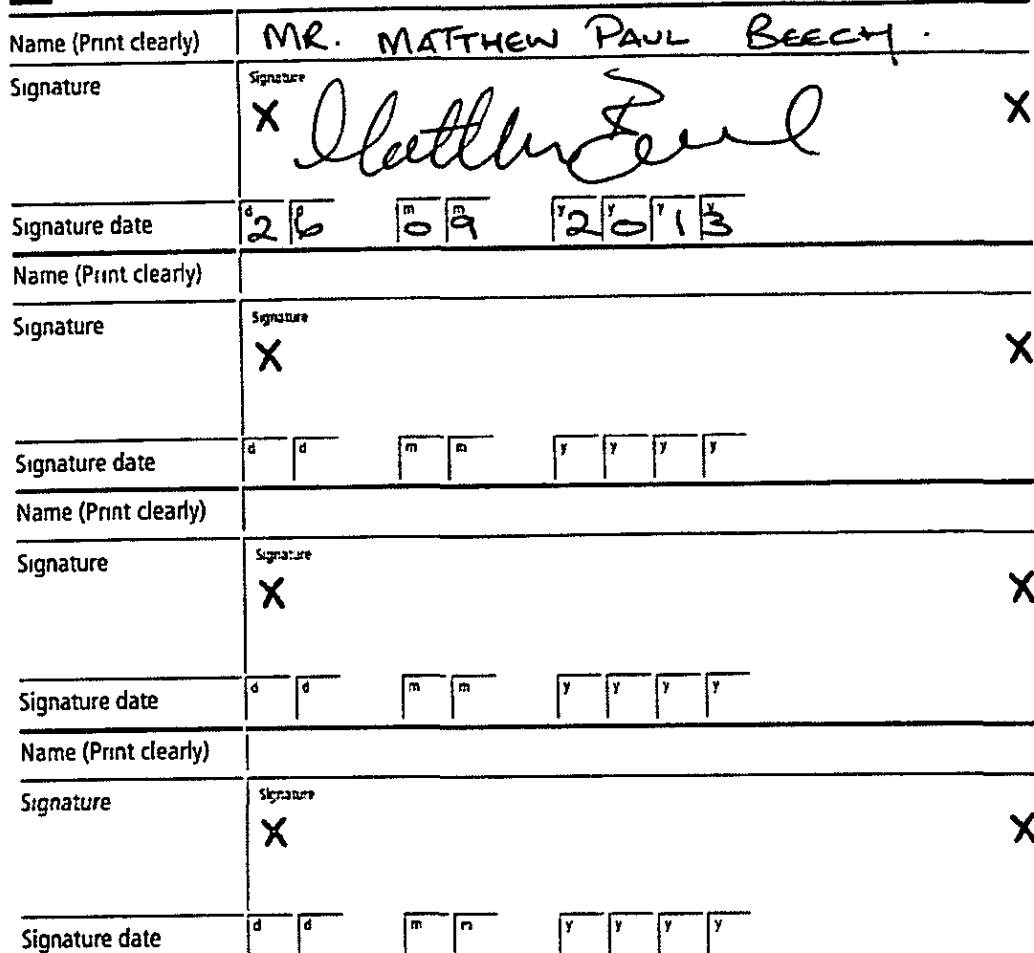 Name (Print clearly) MR. MATTHEW PAUL BEECH.
Signature Signature
X Matthew Beech X
Signature date d d m m y y y y
26 09 2013
Name (Print clearly)
Signature Signature
X X
Signature date d d m m y y y y
Name (Print clearly)
Signature Signature
X X
Signature date d d m m y y y y
Name (Print clearly)
Signature Signature
X X
Signature date d d m n y y y y